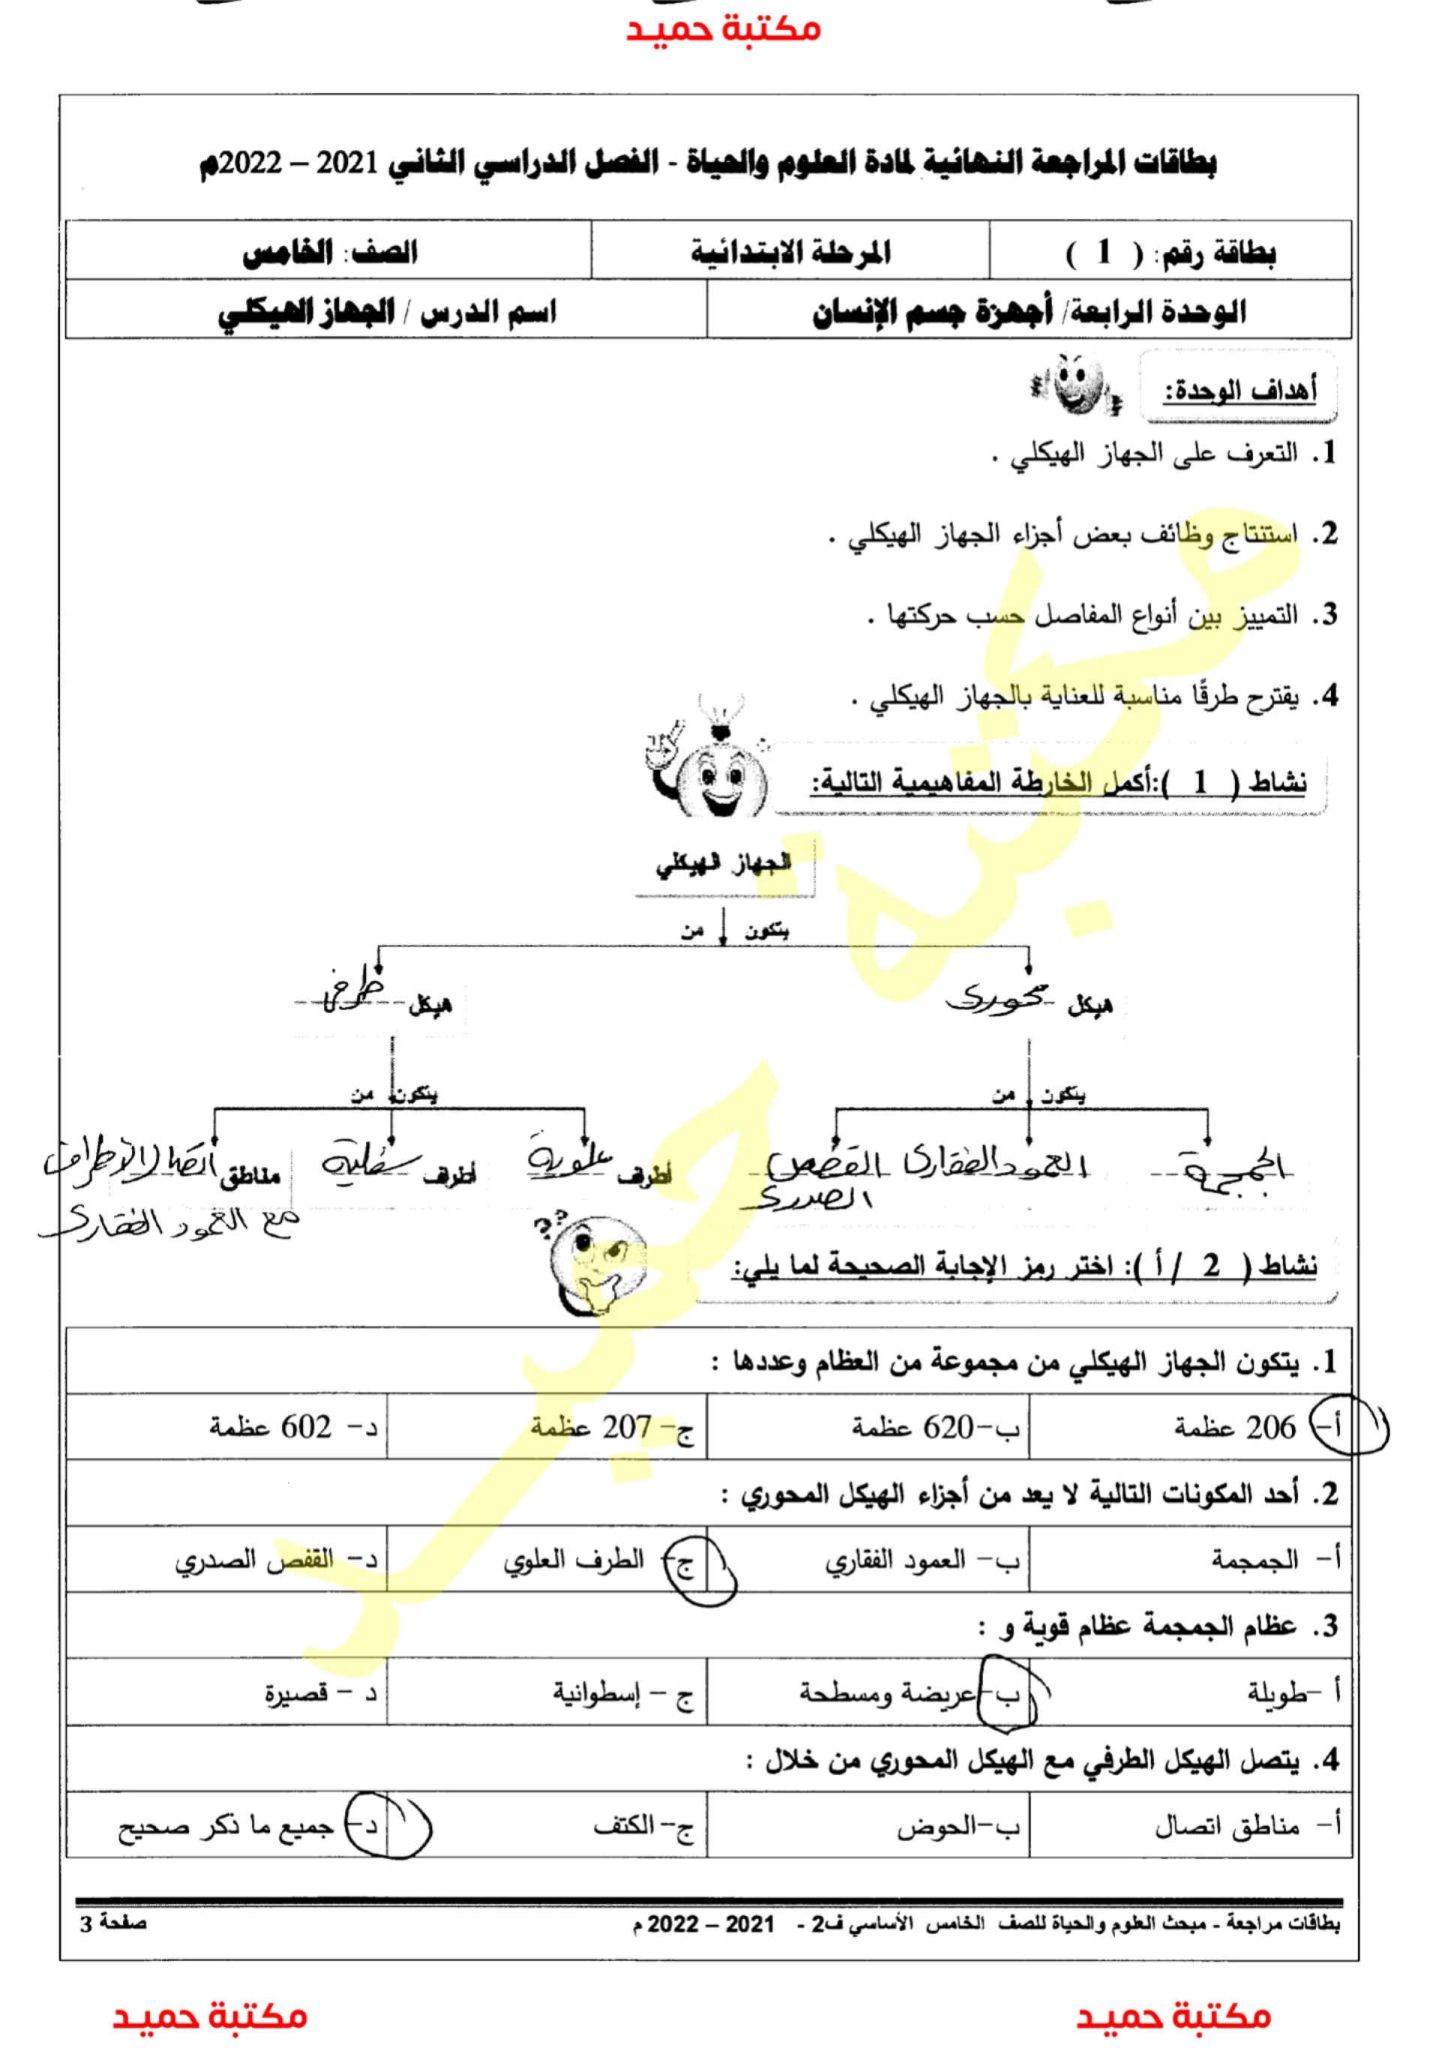 مكتبة حميد
بطاقات المراجعة النهائية لمادة العلوم والحياة - الفصل الدراسي الثاني 2021 – 2022م
بطاقة رقم: ( 1 )
المرحلة الابتدائية
الصف: الخامس
الوحدة الرابعة/ أجهزة جسم الإنسان
اسم الدرس / الجهاز الهيكلي
أهداف الوحدة:
1. التعرف على الجهاز الهيكلي .
2. استنتاج وظائف بعض أجزاء الجهاز الهيكلي .
3. التمييز بين أنواع المفاصل حسب حركتها .
4. يقترح طرقًا مناسبة للعناية بالجهاز الهيكلي .
نشاط ( 1 ):أكمل الخارطة المفاهيمية التالية:
الجهاز الهيكلي
يتكون من
هيكل محوري
هيكل طرفي
يتكون من
يتكون من
الجمجمة
العمود الفقاري
القفص الصدري
أطراف علوية
أطراف سفلية
مناطق اتصال الأطراف
مع العمود الفقاري
??
نشاط ( 2 / أ ): اختر رمز الإجابة الصحيحة لما يلي:
1. يتكون الجهاز الهيكلي من مجموعة من العظام وعددها :
أ- 206 عظمة
ب-620 عظمة
ج- 207 عظمة
د- 602 عظمة
2. أحد المكونات التالية لا يعد من أجزاء الهيكل المحوري :
أ- الجمجمة
ب- العمود الفقاري
ج- الطرف العلوي
د- القفص الصدري
3. عظام الجمجمة عظام قوية و :
أ -طويلة
ب-عريضة ومسطحة
ج - إسطوانية
د - قصيرة
4. يتصل الهيكل الطرفي مع الهيكل المحوري من خلال :
أ- مناطق اتصال
ب-الحوض
ج-الكتف
د- جميع ما ذكر صحيح
بطاقات مراجعة - مبحث العلوم والحياة للصف الخامس الأساسي ف2 - 2021 – 2022 م
صفحة 3
مكتبة حميد
مكتبة حميد
مكتبة حميد